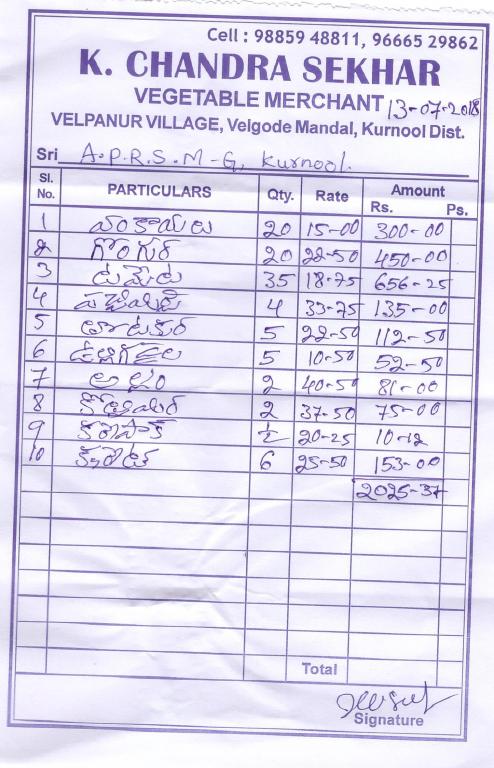 Cell : 98859 48811, 96665 29862
K. CHANDRA SEKHAR
VEGETABLE MERCHANT 13-07-2018
VELPANUR VILLAGE, Velgode Mandal, Kurnool Dist.
Sri A.P.R.S.M-G, Kurnool.
Sl. No. PARTICULARS Qty. Rate Amount Rs. Ps.
1 వంకాయలు 20 15-00 300-00
2 గోంగుర 20 22-50 450-00
3 టమేటు 35 18-75 656-25
4 పచ్చిమిర్చి 4 33-75 135-00
5 తోటకుర 5 22-50 112-50
6 ఉల్లిగడ్డలు 5 10-50 52-50
7 అల్లం 2 40-50 81-00
8 కొత్తిమీర 2 37-50 75-00
9 కరేపాక్ ½ 20-25 10-12
10 క్యారెట్ 6 25-50 153-00
2025-37
Total
Signature